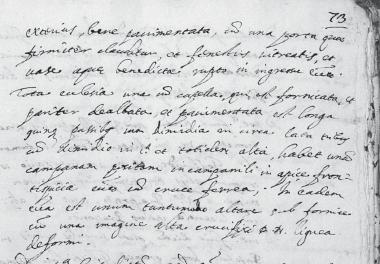 73
exterius, bene pavimentata, cu una porta quae
firmiter clauditur, et fenestris vitreatis, et
vase aquae benedictae rupto in ingressu
Tota ecclesia una cu capella, qui est fornicata, et
pariter dealbata, et pavimentata est longa
passibus cum dimidia in circa lata
cu dimidio in et totidem alta, habet una
campanam positam in campanili in apice fron
tispicii cu cruce ferrea; In eadem
est unum tantum altare sub fornice
cu una imagine alta crucifixi lignea
deformi.